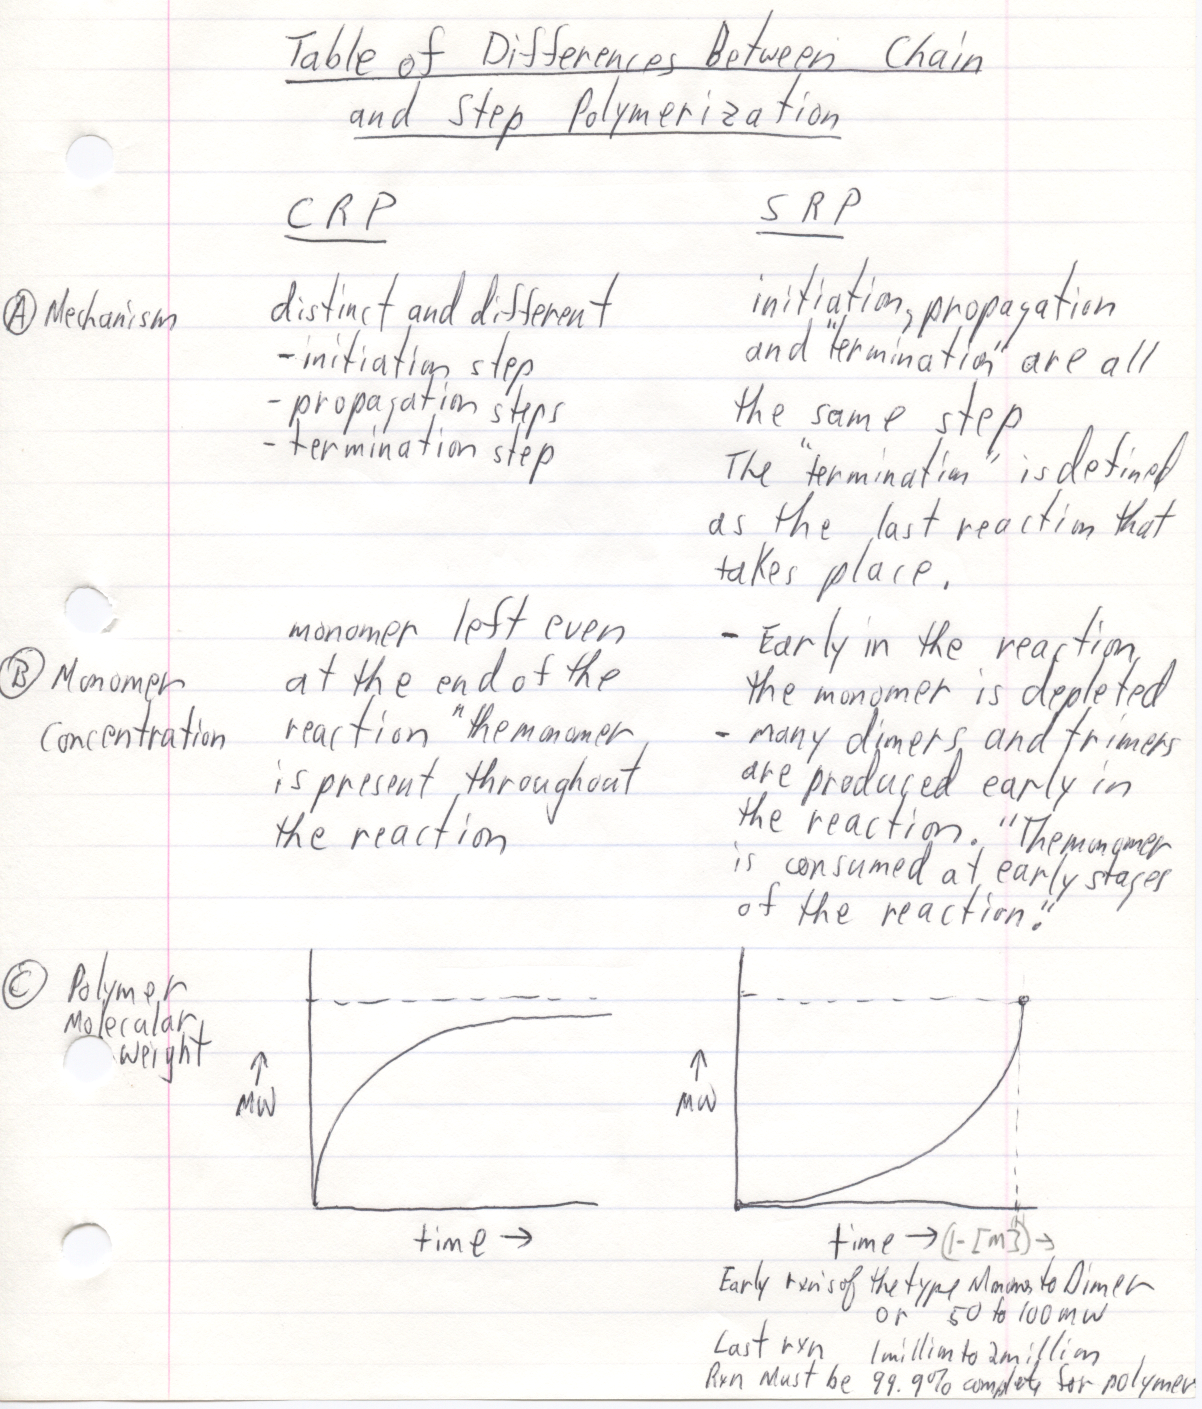 Table of Differences Between Chain
and Step Polymerization
CRP
SRP
A Mechanism
distinct and different
- initiation step
- propagation steps
- termination step
initiation, propagation
and "termination" are all
the same step
The "termination" is defined
as the last reaction that
takes place.
B Monomer
Concentration
monomer left even
at the end of the
reaction "the monomer
is present throughout
the reaction
- Early in the reaction
the monomer is depleted
- many dimers and trimers
are produced early in
the reaction. "The monomer
is consumed at early stages
of the reaction."
C Polymer
Molecular
Weight
↑
MW
time →
↑
MW
time → (1-[M]) →
Early rxn is of the type Monomer to Dimer
or 50 to 100 mw
Last rxn 1 million to 2 million
Rxn Must be 99.9% complete for polymer